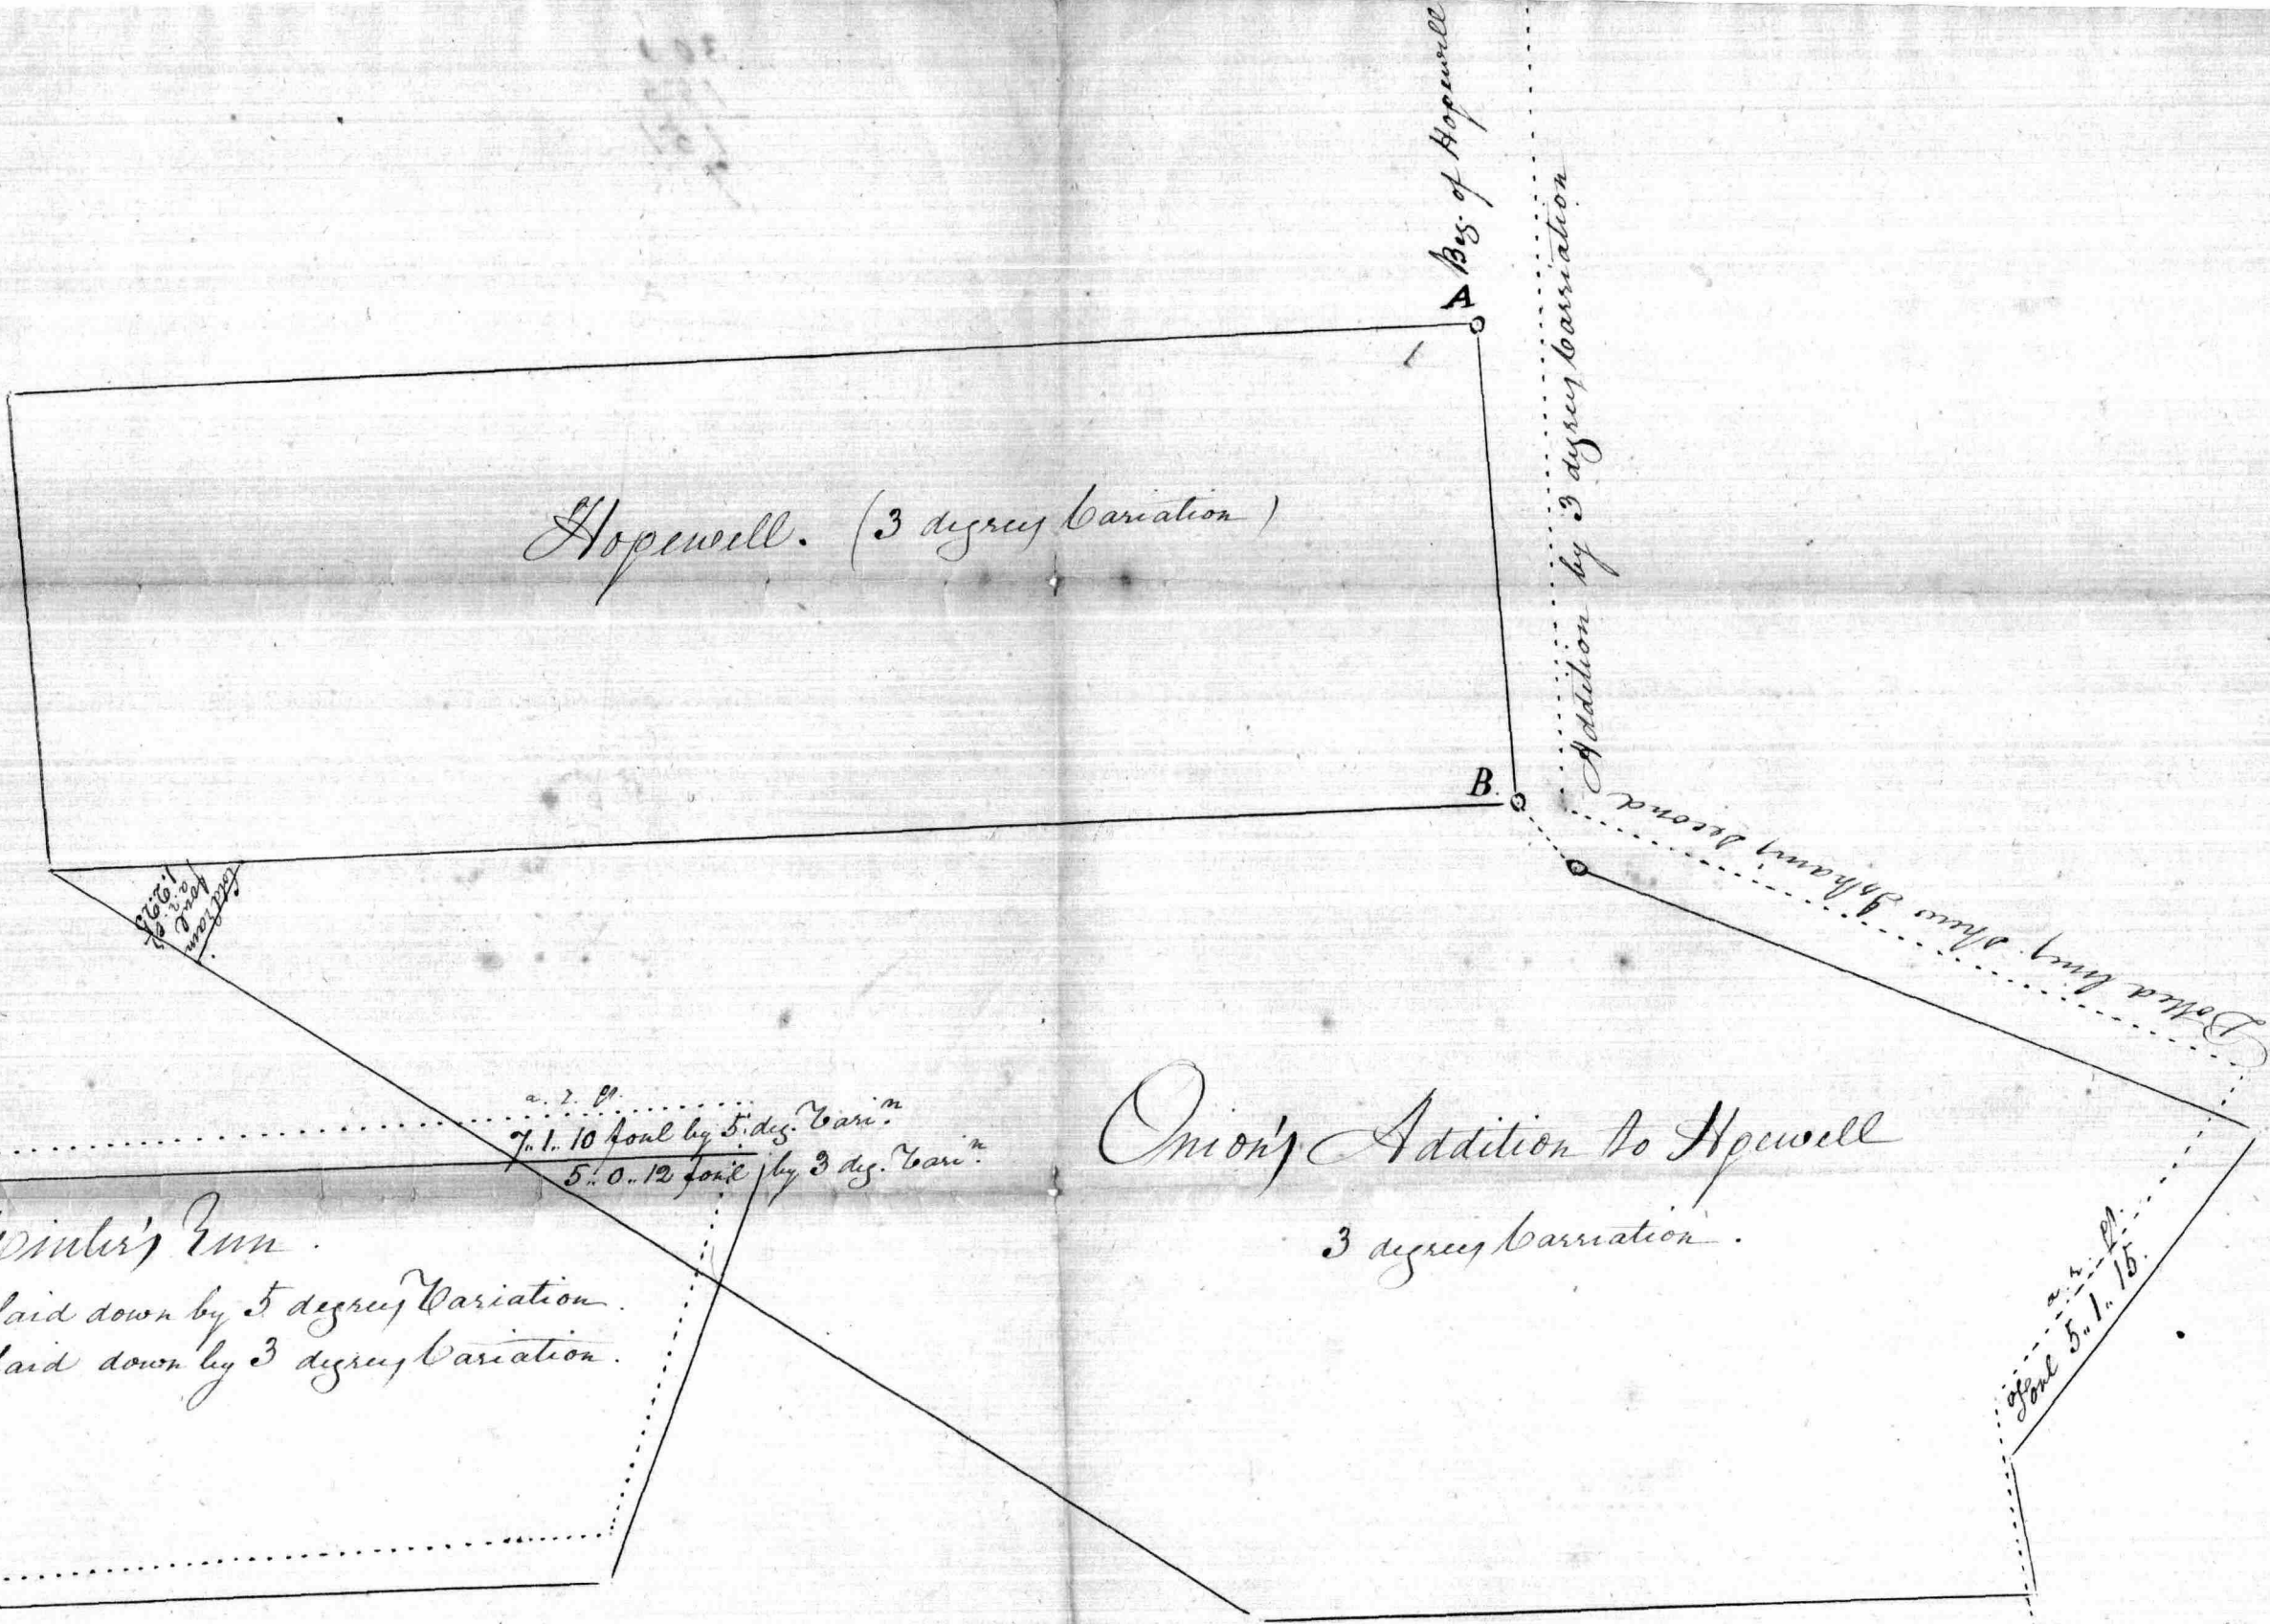 Beg. of Hopewell
A
Addition by 3 degrees Varriation
Hopewell. (3 degrees Variation)
B.
Dotted lines shew Isham's second
foul
a. r.
a. r. p.
7.. 1.. 10 foul by 5. deg. Vari.n
5.. 0.. 12 foul by 3 deg. Vari.n
Onion's Addition to Hpewell
3 degrees Varriation.
a. r. p.
foul 5.. 1.. 15.
inter's Run.
laid down by 5 degrees Variation.
laid down by 3 degrees Variation.